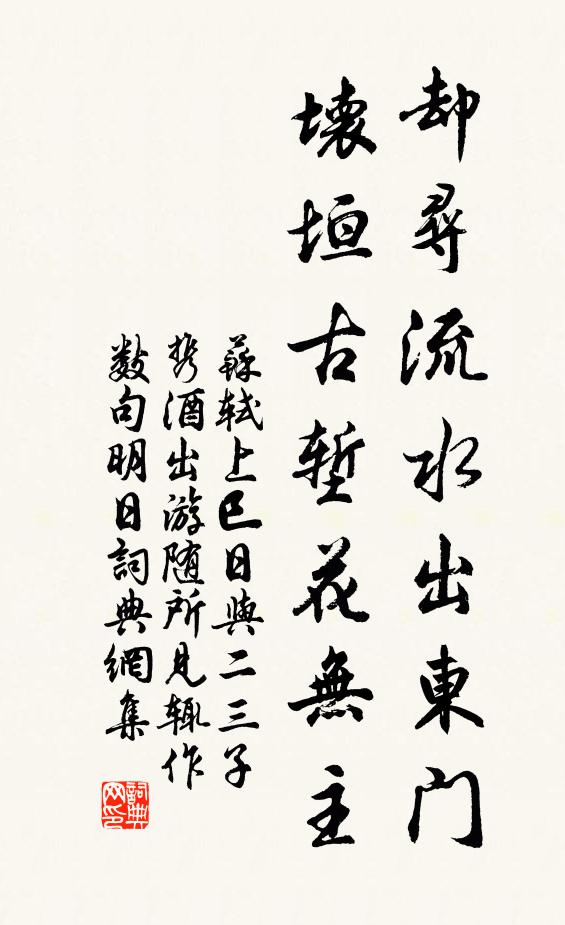 却尋流水出東門
壊垣古塹花無主
蘇軾上巳日與二三子
携酒出游随所見輙作
数句明日詞典網集
詞典
网印